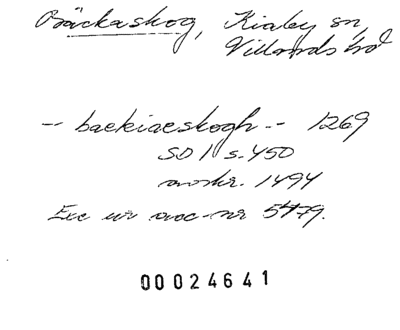 Bäckaskog, Kiaby sn,
Villands hd
-- baekiaeskogh -- 1269
SD 1 s. 450
avskr. 1494
Exc ur acc-nr 5479.
00024641